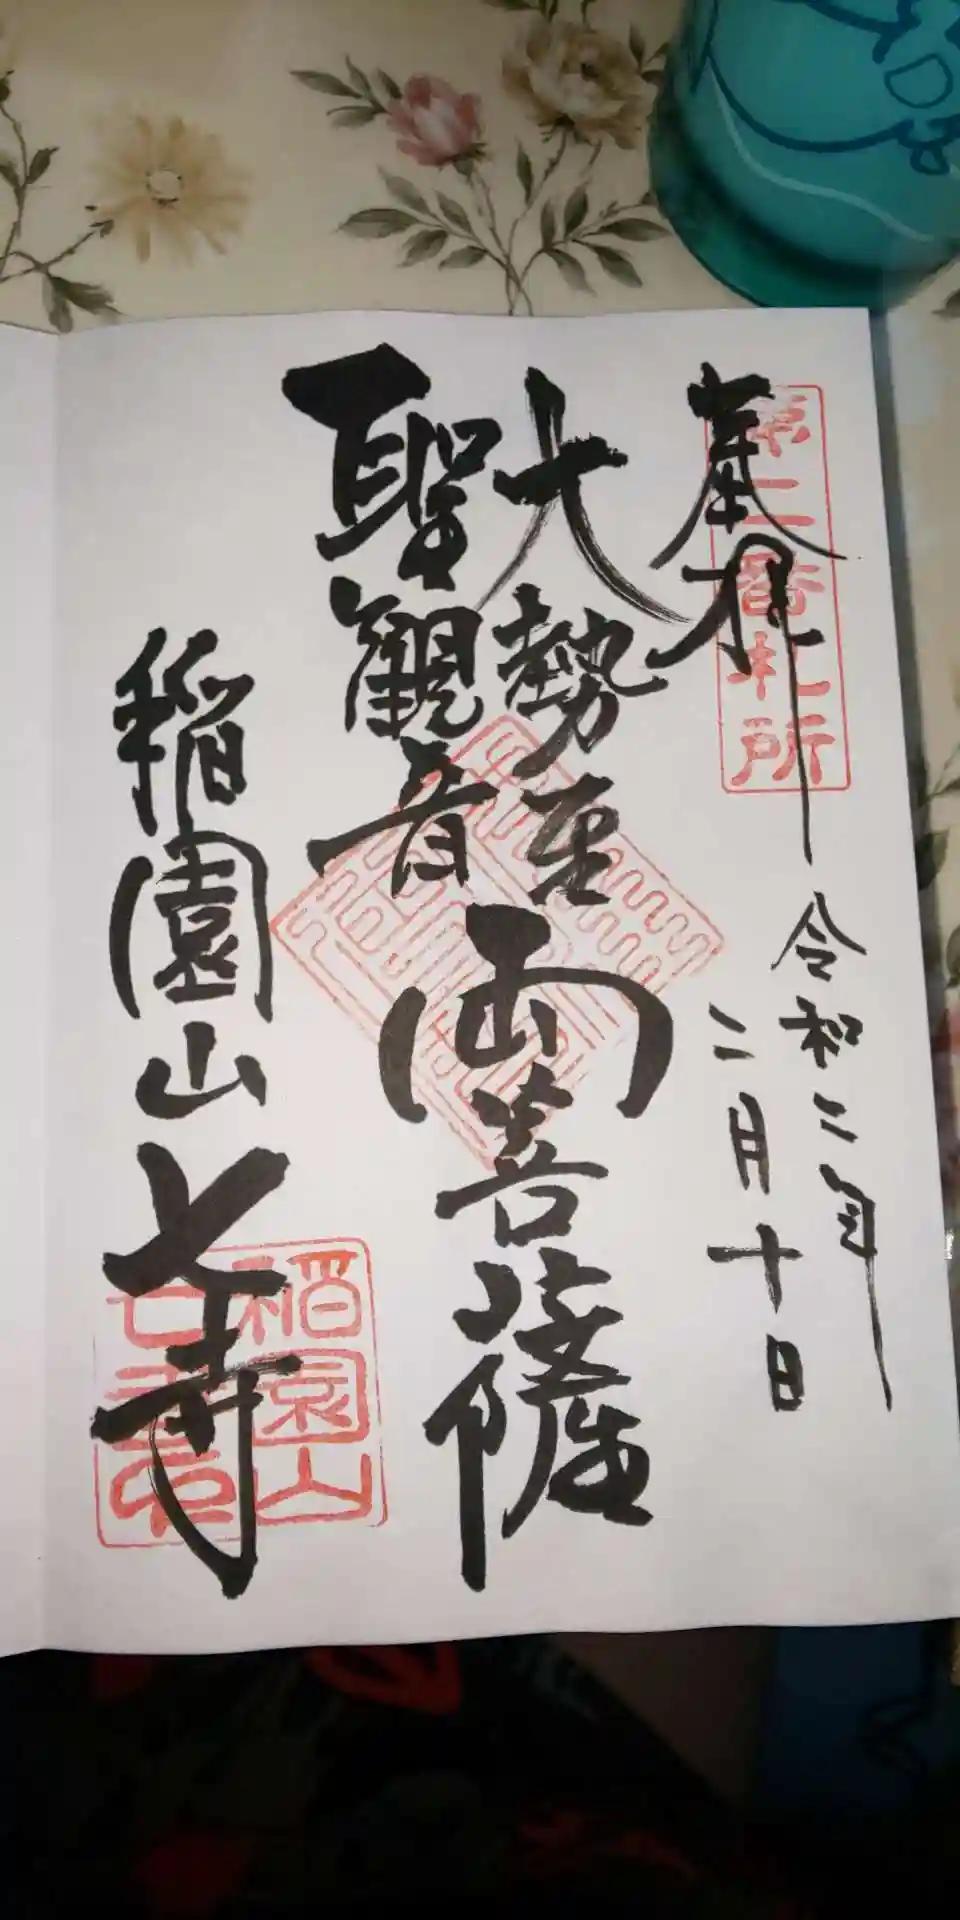 奉拝
第二番札所
令和二年
二月十日
大勢至
聖観音
両菩薩
稲園山七寺
稲園山
七寺